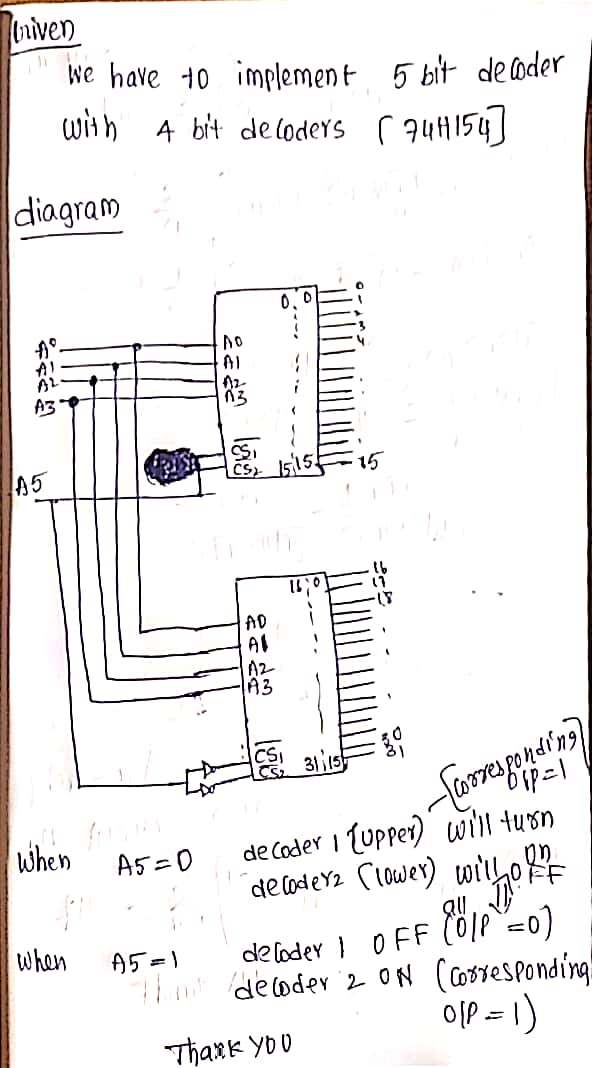 Given
We have to implement 5 bit decoder
with 4 bit decoders [74H154]
diagram
0, 0
0
1
2
3
4
A0
A1
A2
A3
A0
A1
A2
A3
CS1
CS2
15, 15
15
A5
16, 0
16
17
18
A0
A1
A2
A3
CS1
CS2
31, 15
30
31
[corresponding
O/P=1
When A5=0 decoder 1 (upper) will turn on
decoder2 (lower) will OFF
all
When A5=1 decoder 1 OFF (O/P=0)
decoder 2 ON (corresponding
O/P = 1)
Thank you